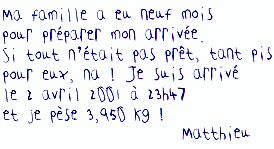 Ma famille a eu neuf mois
pour préparer mon arrivée.
Si tout n'était pas prêt, tant pis
pour eux, na ! Je suis arrivé
le 2 avril 2001 à 23h47
et je pèse 3,950 kg !
Matthieu